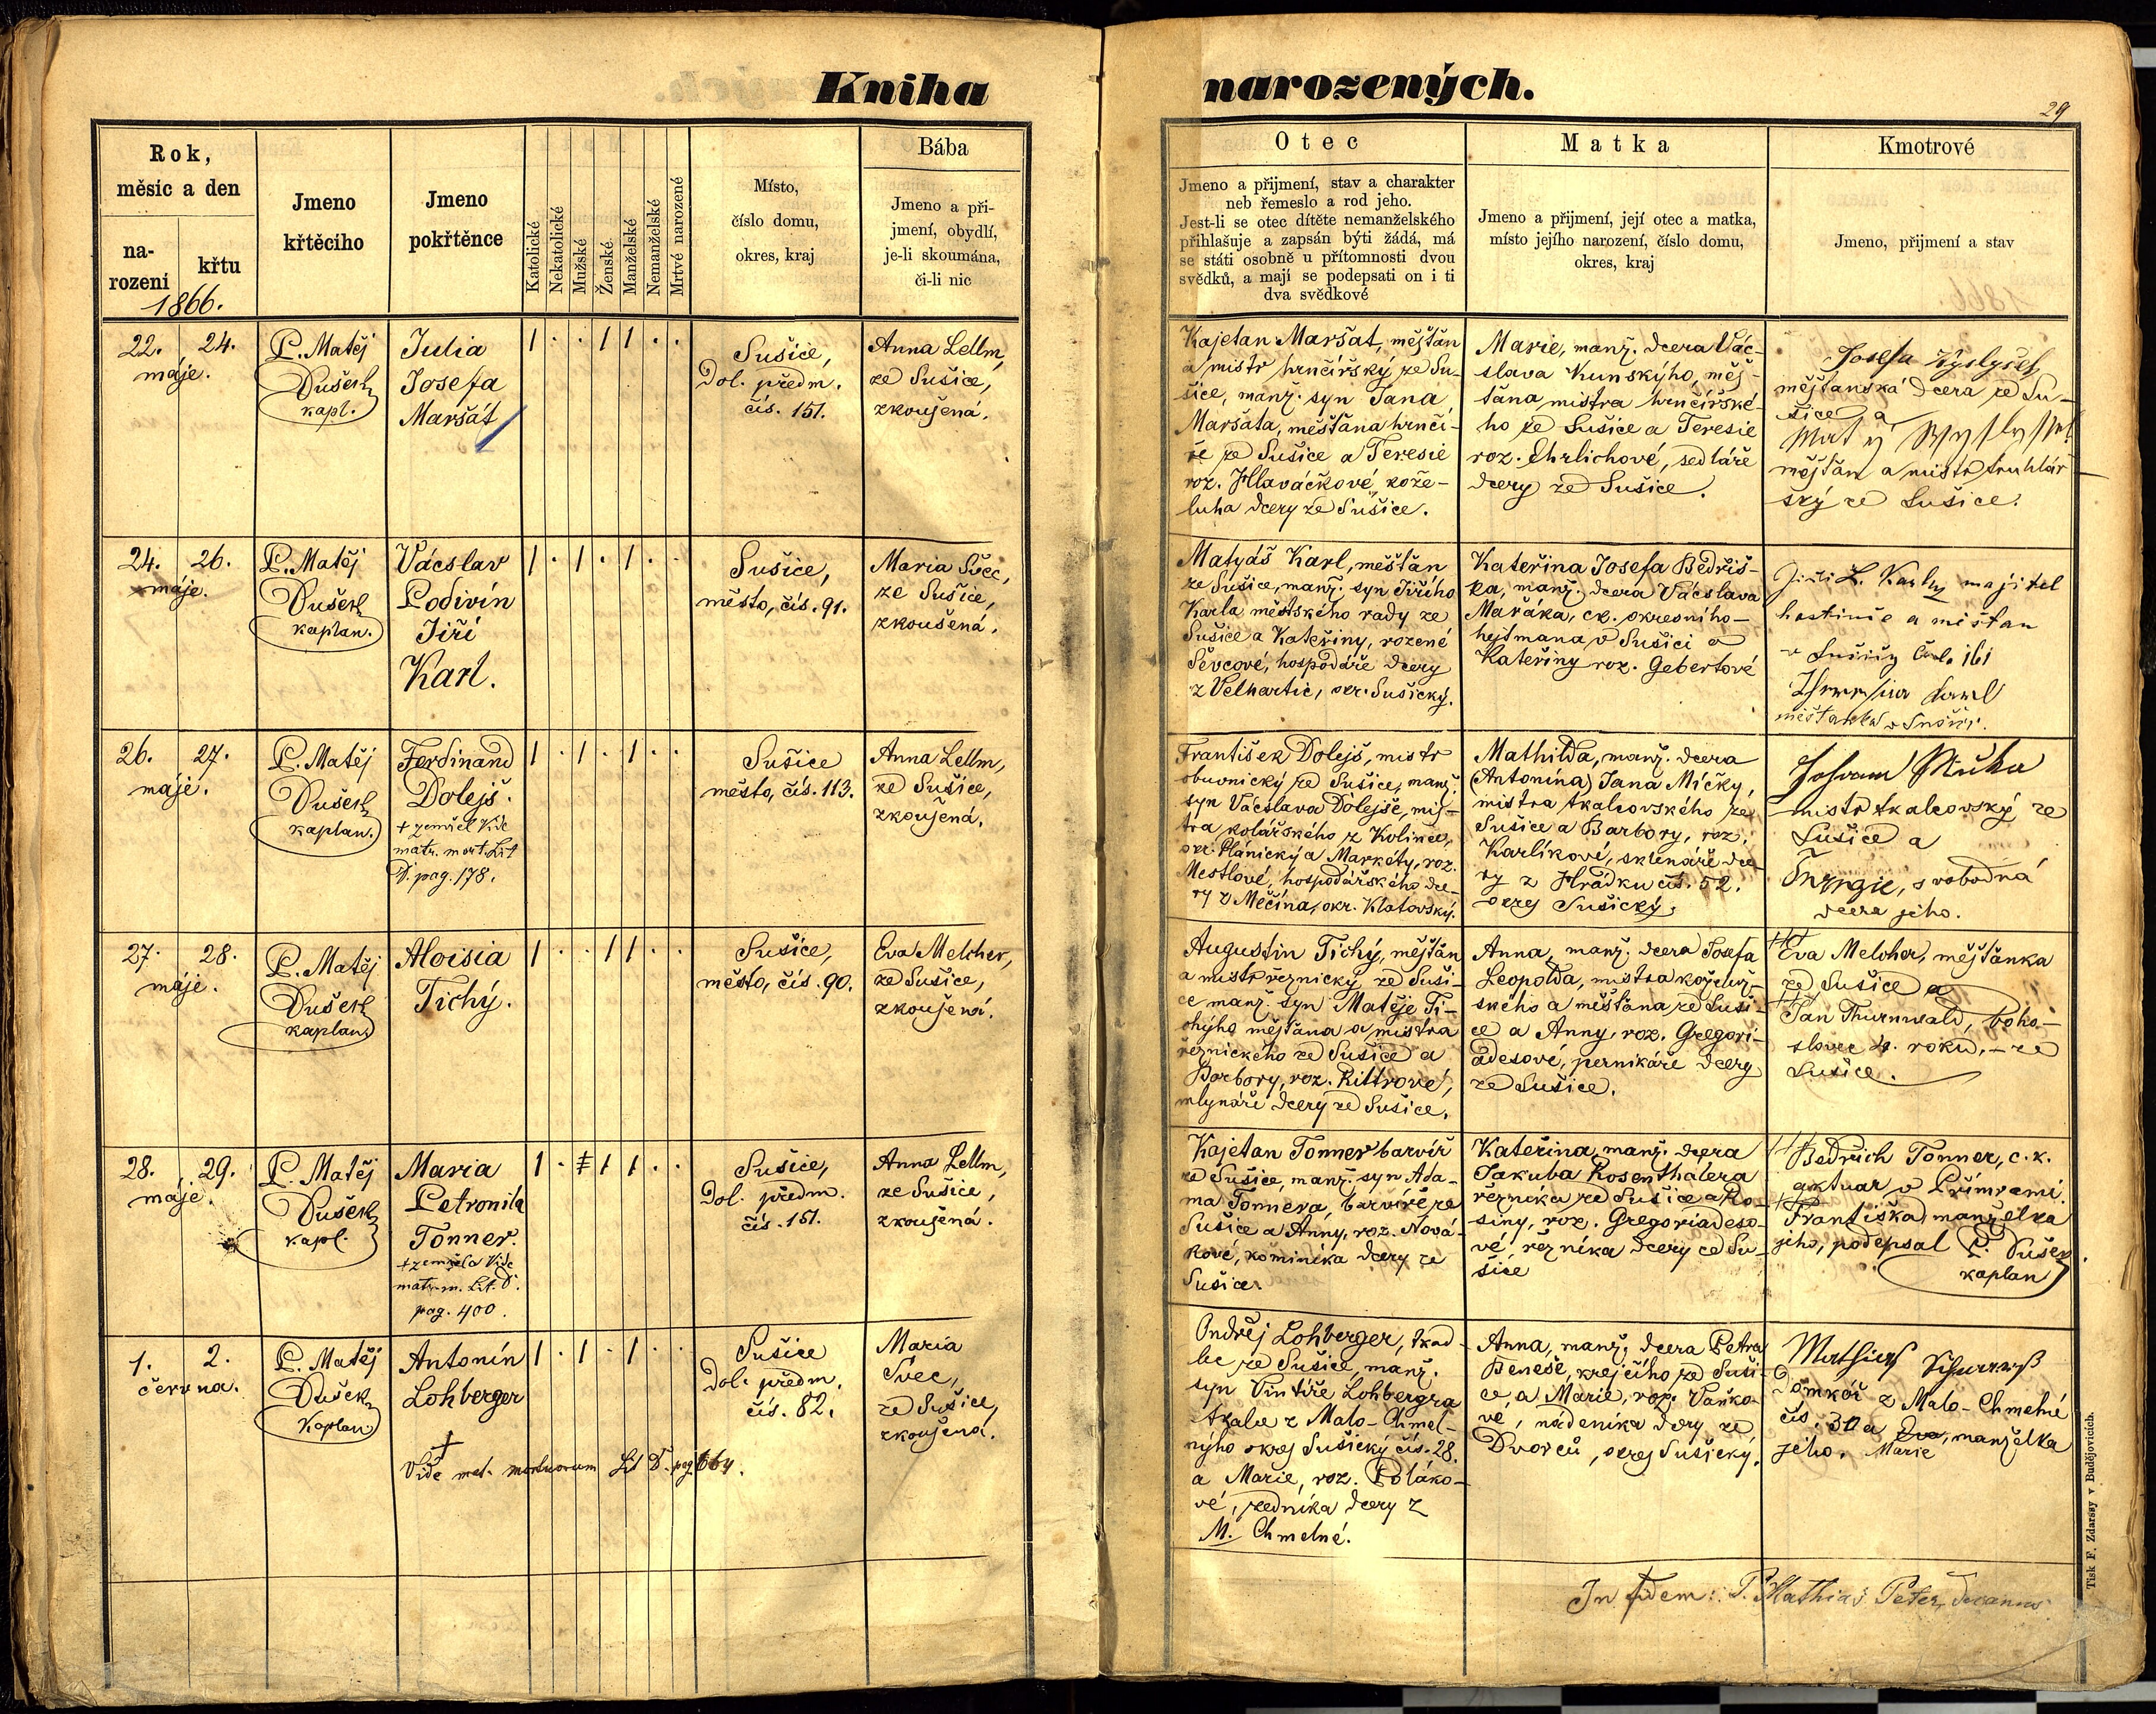 Kniha narozených.
29
Rok,
měsic a den
na-
rozeni
křtu
1866.
Jmeno
křtěciho
Jmeno
pokřtěnce
Katolické
Nekatolické
Mužské
Ženské
Manželské
Nemanželské
Mrtvě narozené
Místo,
číslo domu,
okres, kraj
Bába
Jmeno a při-
jmení, obydlí,
je-li skoumána,
či-li nic
Otec
Jmeno a přijmení, stav a charakter
neb řemeslo a rod jeho.
Jest-li se otec dítěte nemanželského
přihlašuje a zapsán býti žádá, má
se státi osobně u přítomnosti dvou
svědků, a mají se podepsati on i ti
dva svědkové
Matka
Jmeno a přijmení, její otec a matka,
místo jejího narození, číslo domu,
okres, kraj
Kmotrové
Jmeno, přijmení a stav
22. 24.
máje.
P. Matěj
Dušek
kapl.
Julia
Josefa
Maršát
1 . . 1 1 . .
Sušice,
Dol. předm.
čís. 151.
Anna Lellm,
ze Sušice,
zkoušená.
Kajetan Maršat, měšťan
a mistr hrnčířský ze Su-
šice, manž. syn Jana
Maršata, měšťana hrnčí-
ře ze Sušice a Teresie
roz. Hlaváčkové, kože-
luha dcery ze Sušice.
Marie, manž. dcera Vác-
slava Kunského, měš-
ťana mistra hrnčířské-
ho ze Sušice a Teresie
roz. Ehrlichové, sedláře
dcery ze Sušice.
Josefa
měšťanska dcera ze Su-
šice a
měšťan a mistr truhlář-
ský ze Sušice.
24. 26.
máje.
P. Matěj
Dušek
kaplan.
Vácslav
Podivín
Jiří
Karl.
1 . 1 . 1 . .
Sušice,
město, čís. 91.
Maria Švec,
ze Sušice,
zkoušená.
Matyáš Karl, měšťan
ze Sušice, manž. syn Jiřího
Karla městského rady ze
Sušice a Kateřiny, rozené
Ševcové, hospodáře dcery
z Velhartic, okr. Sušický.
Kateřina Josefa Bedřiš-
ka, manž. dcera Vácslava
Mařáka, ck. okresního-
hejtmana v Sušici a
Kateřiny roz. Gebertové
Jiří L. Karl majitel
hostince a měšťan
v Sušici 161
měšťanka v Sušici.
26. 27.
máje.
P. Matěj
Dušek
kaplan.
Ferdinand
Dolejš.
+ zemřel Vide
matr. mort. Lit
D. pag. 178.
1 . 1 . 1 . .
Sušice
město, čís. 113.
Anna Lellm,
ze Sušice,
zkoušená.
František Dolejš, mistr
obuvnický ze Sušice, manž.
syn Vácslava Dolejše, mis-
tra kolářského z Kolince,
okr. Plánický a Markéty, roz.
Mestlové, hospodářského dce-
ry z Měčína, okr. Klatovský.
Mathilda, manž. dcera
(Antonína) Jana Míčky,
mistra tkalcovského ze
Sušice a Barbory, roz.
Karlíkové, sklenáře dce-
ry z Hrádku čís. 52.
okres Sušický.
Johann
mistr tkalcovský ze
Sušice a
svobodná
dcera jeho.
27. 28.
máje.
P. Matěj
Dušek
kaplan
Aloisia
Tichý.
1 . . 1 1 . .
Sušice,
město, čís. 90.
Eva Melcher,
ze Sušice,
zkoušená.
Augustin Tichý, měšťan
a mistr řeznický ze Suši-
ce manž. syn Matěje Ti-
chýho měšťana a mistra
řeznického ze Sušice a
Barbory, roz. Rittrové,
mlynáře dcery ze Sušice.
Anna, manž. dcera Josefa
Leopolda, mistra koželuž-
ského a měšťana ze Suši-
ce a Anny, roz. Gregori-
adesové, pernikáře dcery
ze Sušice.
Eva Melcher, měšťanka
ze Sušice a
Jan Thurnwald, boho-
slovec 4. roku, - ze
Sušice.
28. 29.
máje.
P. Matěj
Dušek
kapl.
Maria
Petronila
Tonner.
+ zemřela Vide
matr. m. Lit. D.
pag. 400.
1 . 1 1 1 . .
Sušice,
Dol. předm.
čís. 151.
Anna Lellm,
ze Sušice,
zkoušená.
Kajetan Tonner barvíř
ze Sušice, manž. syn Ada-
ma Tonnera, barvíře ze
Sušice a Anny, roz. Nová-
kové, kominíka dcery ze
Sušice.
Kateřina, manž. dcera
Jakuba Rosenthalera
řezníka ze Sušice a Ro-
siny, roz. Gregoriadeso-
vé, řezníka dcery ze Su-
šice
Bedřich Tonner, c. k.
aktuar v Přímrami.
Františka manželka
jeho, podepsal P. Dušek
kaplan
1. 2.
června.
P. Matěj
Dušek
Kaplan
Antonín
Lohberger
†
Vide mat. mortuorum Lit D. pag. 664.
1 . 1 . 1 . .
Sušice
Dol. předm.
čís. 82.
Maria
Švec,
ze Sušice,
zkoušená.
Ondřej Lohberger, tkad-
lec ze Sušice, manž.
syn Vintíře Lohbergra
tkalce z Malo-Chmel-
nýho okres Sušický čís. 28.
a Marie, roz. Poláko-
vé, zedníka dcery z
M. Chmelné.
Anna, manž. dcera Petra
Beneše, krejčího ze Suši-
ce, a Marie, roz. Vaňko-
vé, nádeníka dcery ze
Dvorců, okres Sušický.
Mathias
Domkář z Malo-Chmelné
čís. 30 a Eva, manželka
jeho. Marie
In fidem: P. Mathias Peter, Decanus
Tisk F. Zdarssy v Budějovicích.